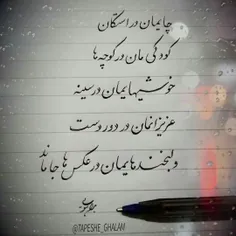 چایمان در استکان
کودکی مان در کوچه ها
خوشیهایمان در سینه
عزیزانمان در دور دست
و لبخندهایمان در عکس ها جا ماند
@TAPESHE_GHALAM